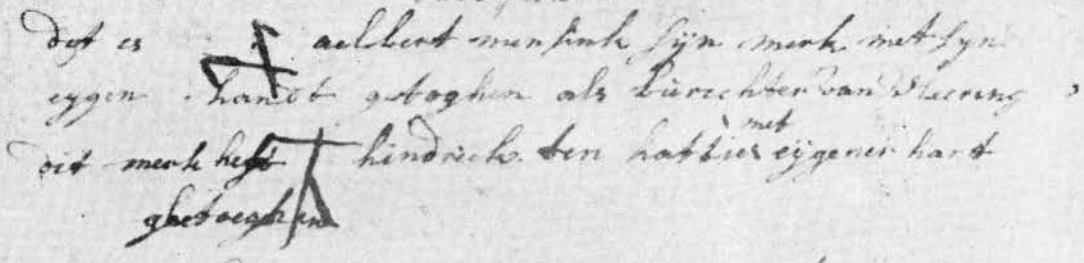 dit es aelbert mensink sijn merk met syn
eygen handt getoghen als búrrichter van
dit merk heft hindrick ten eygener hant
met
ghetoeghen